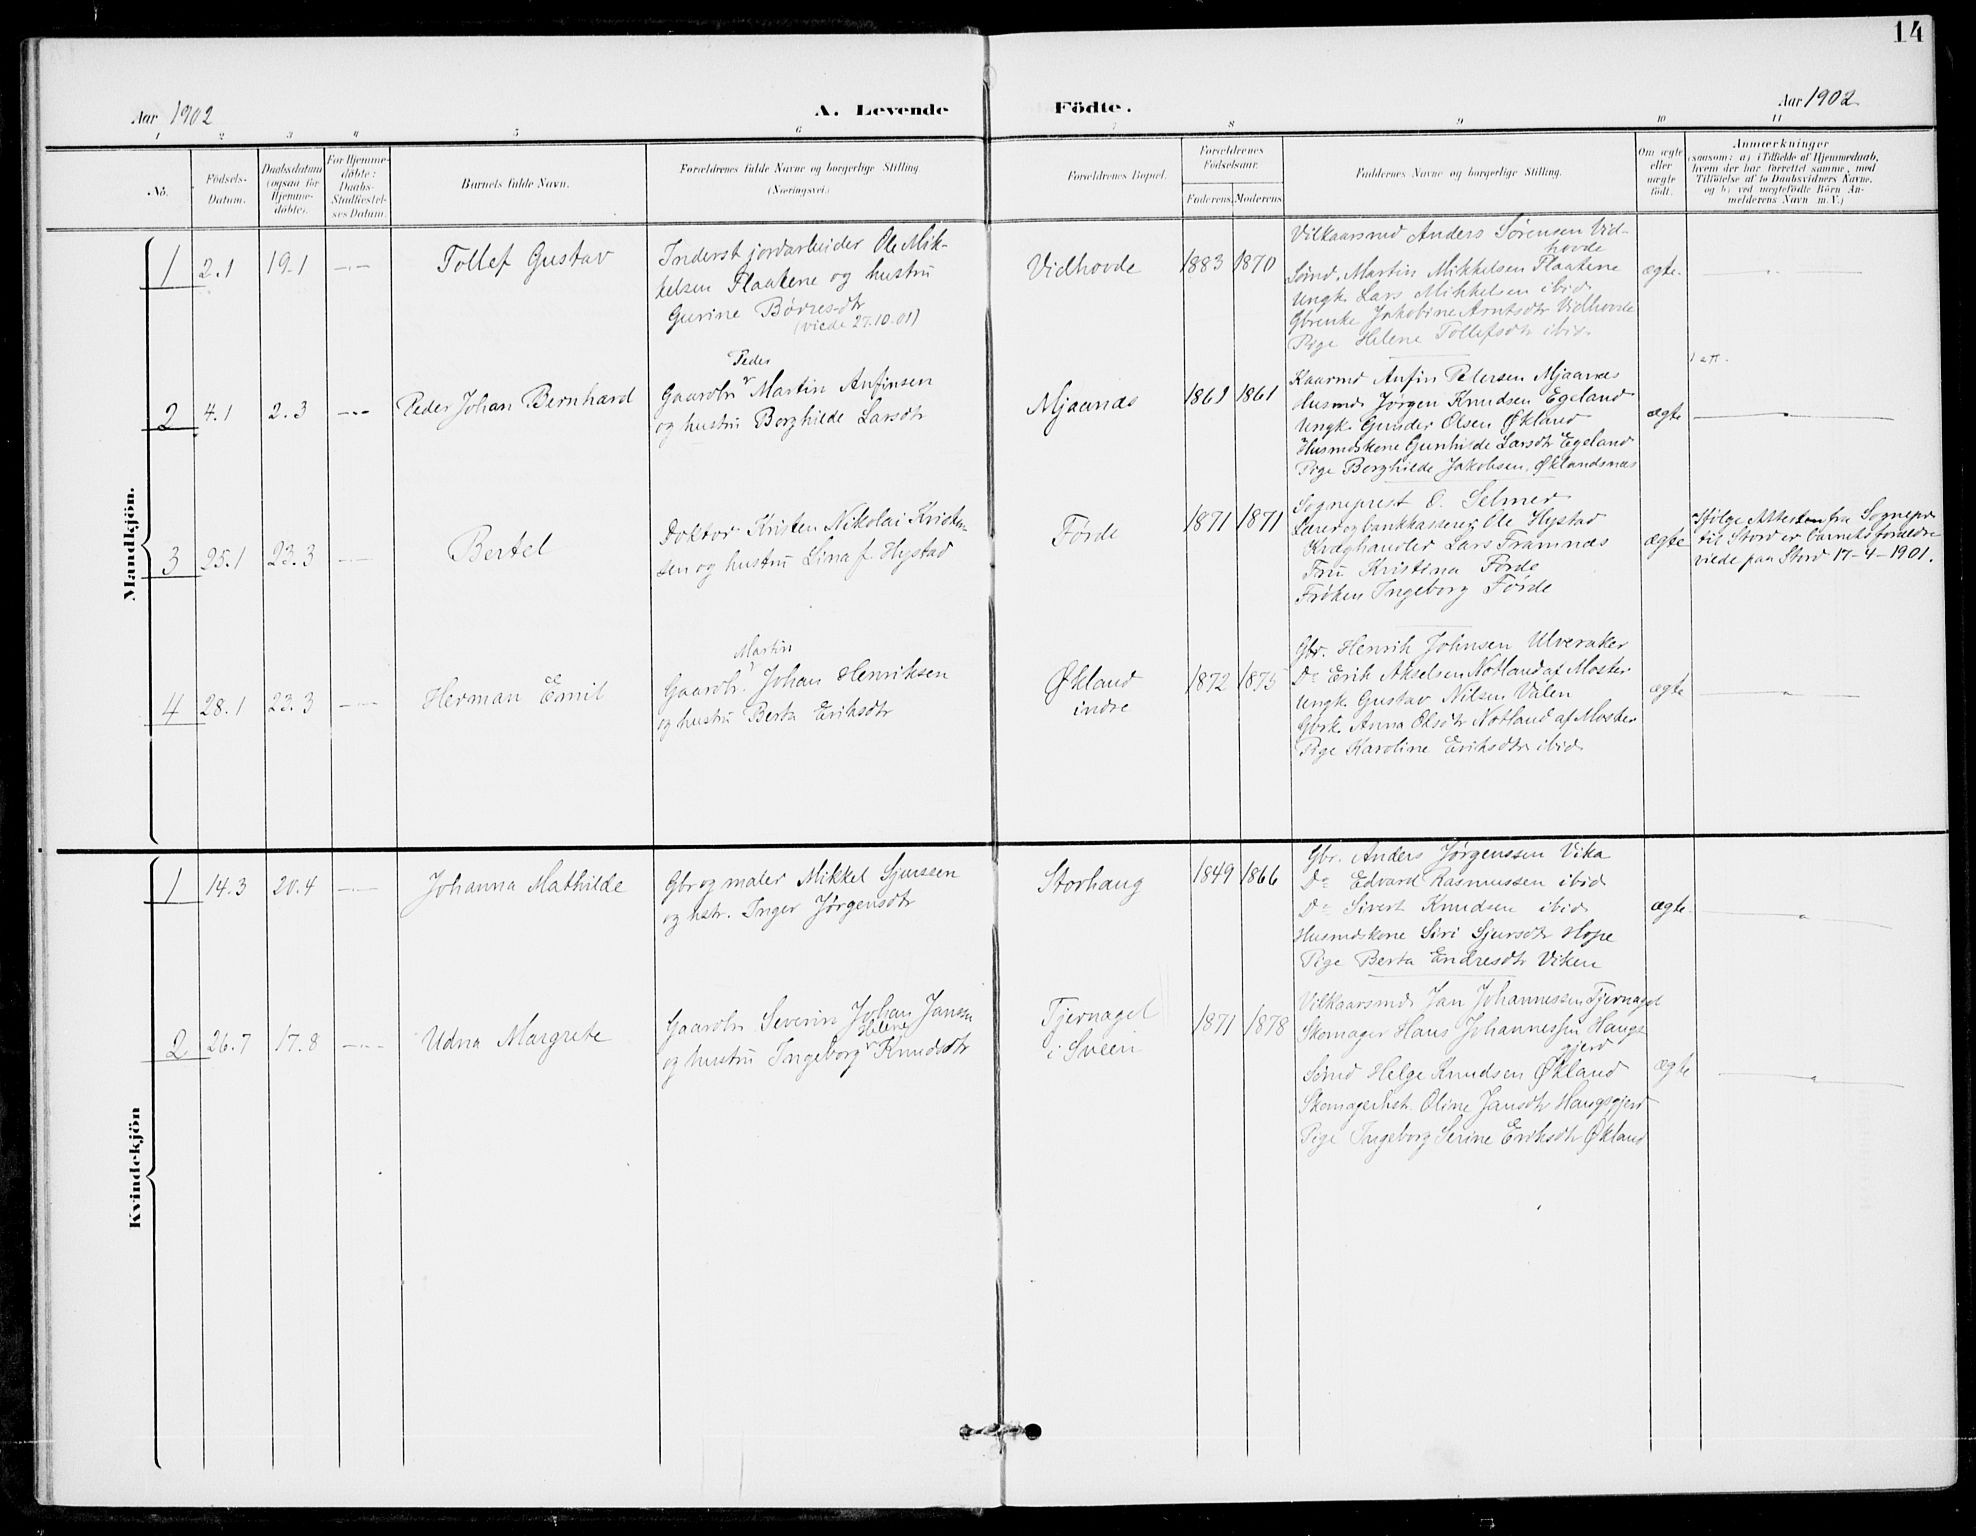 14
Aar 1902
A. Levende
Födte.
Aar 1902
1 2 3 4 5 6 7 8 9 10 11
No.
Födsels-
Datum.
Daabsdatum
(ogsaa for
Hjemme-
döbte).
For Hjemme-
döbte:
Daabs-
Stadfæstel-
ses Datum.
Barnets fulde Navn.
Forældrenes fulde Navne og borgerlige Stilling
(Næringsvei.)
Forældrenes Bopæl.
Forældrenes
Födselsaar.
Faderens.
Moderens.
Faddernes Navne og borgerlige Stilling.
Om ægte
eller
uægte
födt.
Anmærkninger
(saasom: a) i Tilfælde af Hjemmedaab,
hvem der har forrettet samme, med
Tilföielse af to Daabsvidners Navne,
og b) ved uægtefödte Börn An-
melderens Navn m. V.)
Mandkjön.
1 2.1 19.1 —
Tollef Gustav
Inderst jordarbeider Ole Mik-
kelsen Flaatene og hustru
Gurine Børresdtr
(viede 27.10.01)
Vidhovde
1883 1870
Vilkaarsmd Anders Sørensen Vid-
hovde
Smd. Martin Mikkelsen Flaatene
Ungk. Lars Mikkelsen ibid.
Gbrenke Jakobine Arntsdtr Vidhovde
Pige Helene Tollefsdtr ibid.
ægte
2 4.1 2.3 —
Peder Johan Bernhard
Peder
Gaardbr Martin Anfinsen
og hustru Borghilde Larsdtr
Mjaanæs
1869 1861
Kaarmd Anfin Petersen Mjaanæs
Husmd Jørgen Knudsen Egeland
Ungk. Gunder Olsen Økland
Husmdskone Gunhilde Larsdtr Egeland
Pige Borghilde Jakobsen, Øklandsnæs
ægte
1 att.
3 25.1 23.3 —
Bertel
Doktor Kristen Nikolai Kristen-
sen og hustru Lina f. Hystad
Førde
1871 1871
Sogneprest O. Selmer
Lærer og bankkasserer Ole Hystad
Kræghandler Lars Framnæs
Fru Kristina Førde
Frøken Ingeborg Førde
ægte
Ifølge Attest fra Sognepr.
til Stord er barnets forældre
viede paa Stord 17-4-1901.
4 28.1 23.3 —
Herman Emil
Martin
Gaardbr. Johan Henriksen
og hustru Berta Eriksdtr
Økland
indre
1872 1875
Gbr. Henrik Johnsen Ulveraker
Do Erik Akselsen Notland af Moster
Ungk. Gustav Nilsen Valen
Gbrk. Anna Olsdtr Notland af Moster
Pige Karoline Eriksdtr ibid.
ægte
Kvindekjön
1 14.3 20.4 —
Johanna Mathilde
Gbr og maler Mikkel Sjurssen
og hstr. Inger Jørgensdtr
Storhaug
1849 1866
Gbr. Anders Jørgenssen Vika
Do Edvard Rasmussen ibid
Do Sivert Knudsen ibid
Husmdskone Siri Sjursdtr Hope
Pige Berta Endresdtr Viken
ægte
2 26.7 17.8 —
Udna Margrete
Gaardbr. Severin Johan Jansen
Helene
og hustru Ingeborg Knudsdtr
Tjernagel
i Sveen
1871 1878
Vilkaarsmd Jan Johannessen Tjernagel
Skomager Hans Johannessen Haugs-
gjerd
Smd Helge Knudsen Økland
Skomagerhst. Oline Jansdtr Haugsgjerd
Pige Ingeborg Serine Eriksdtr Økland
ægte